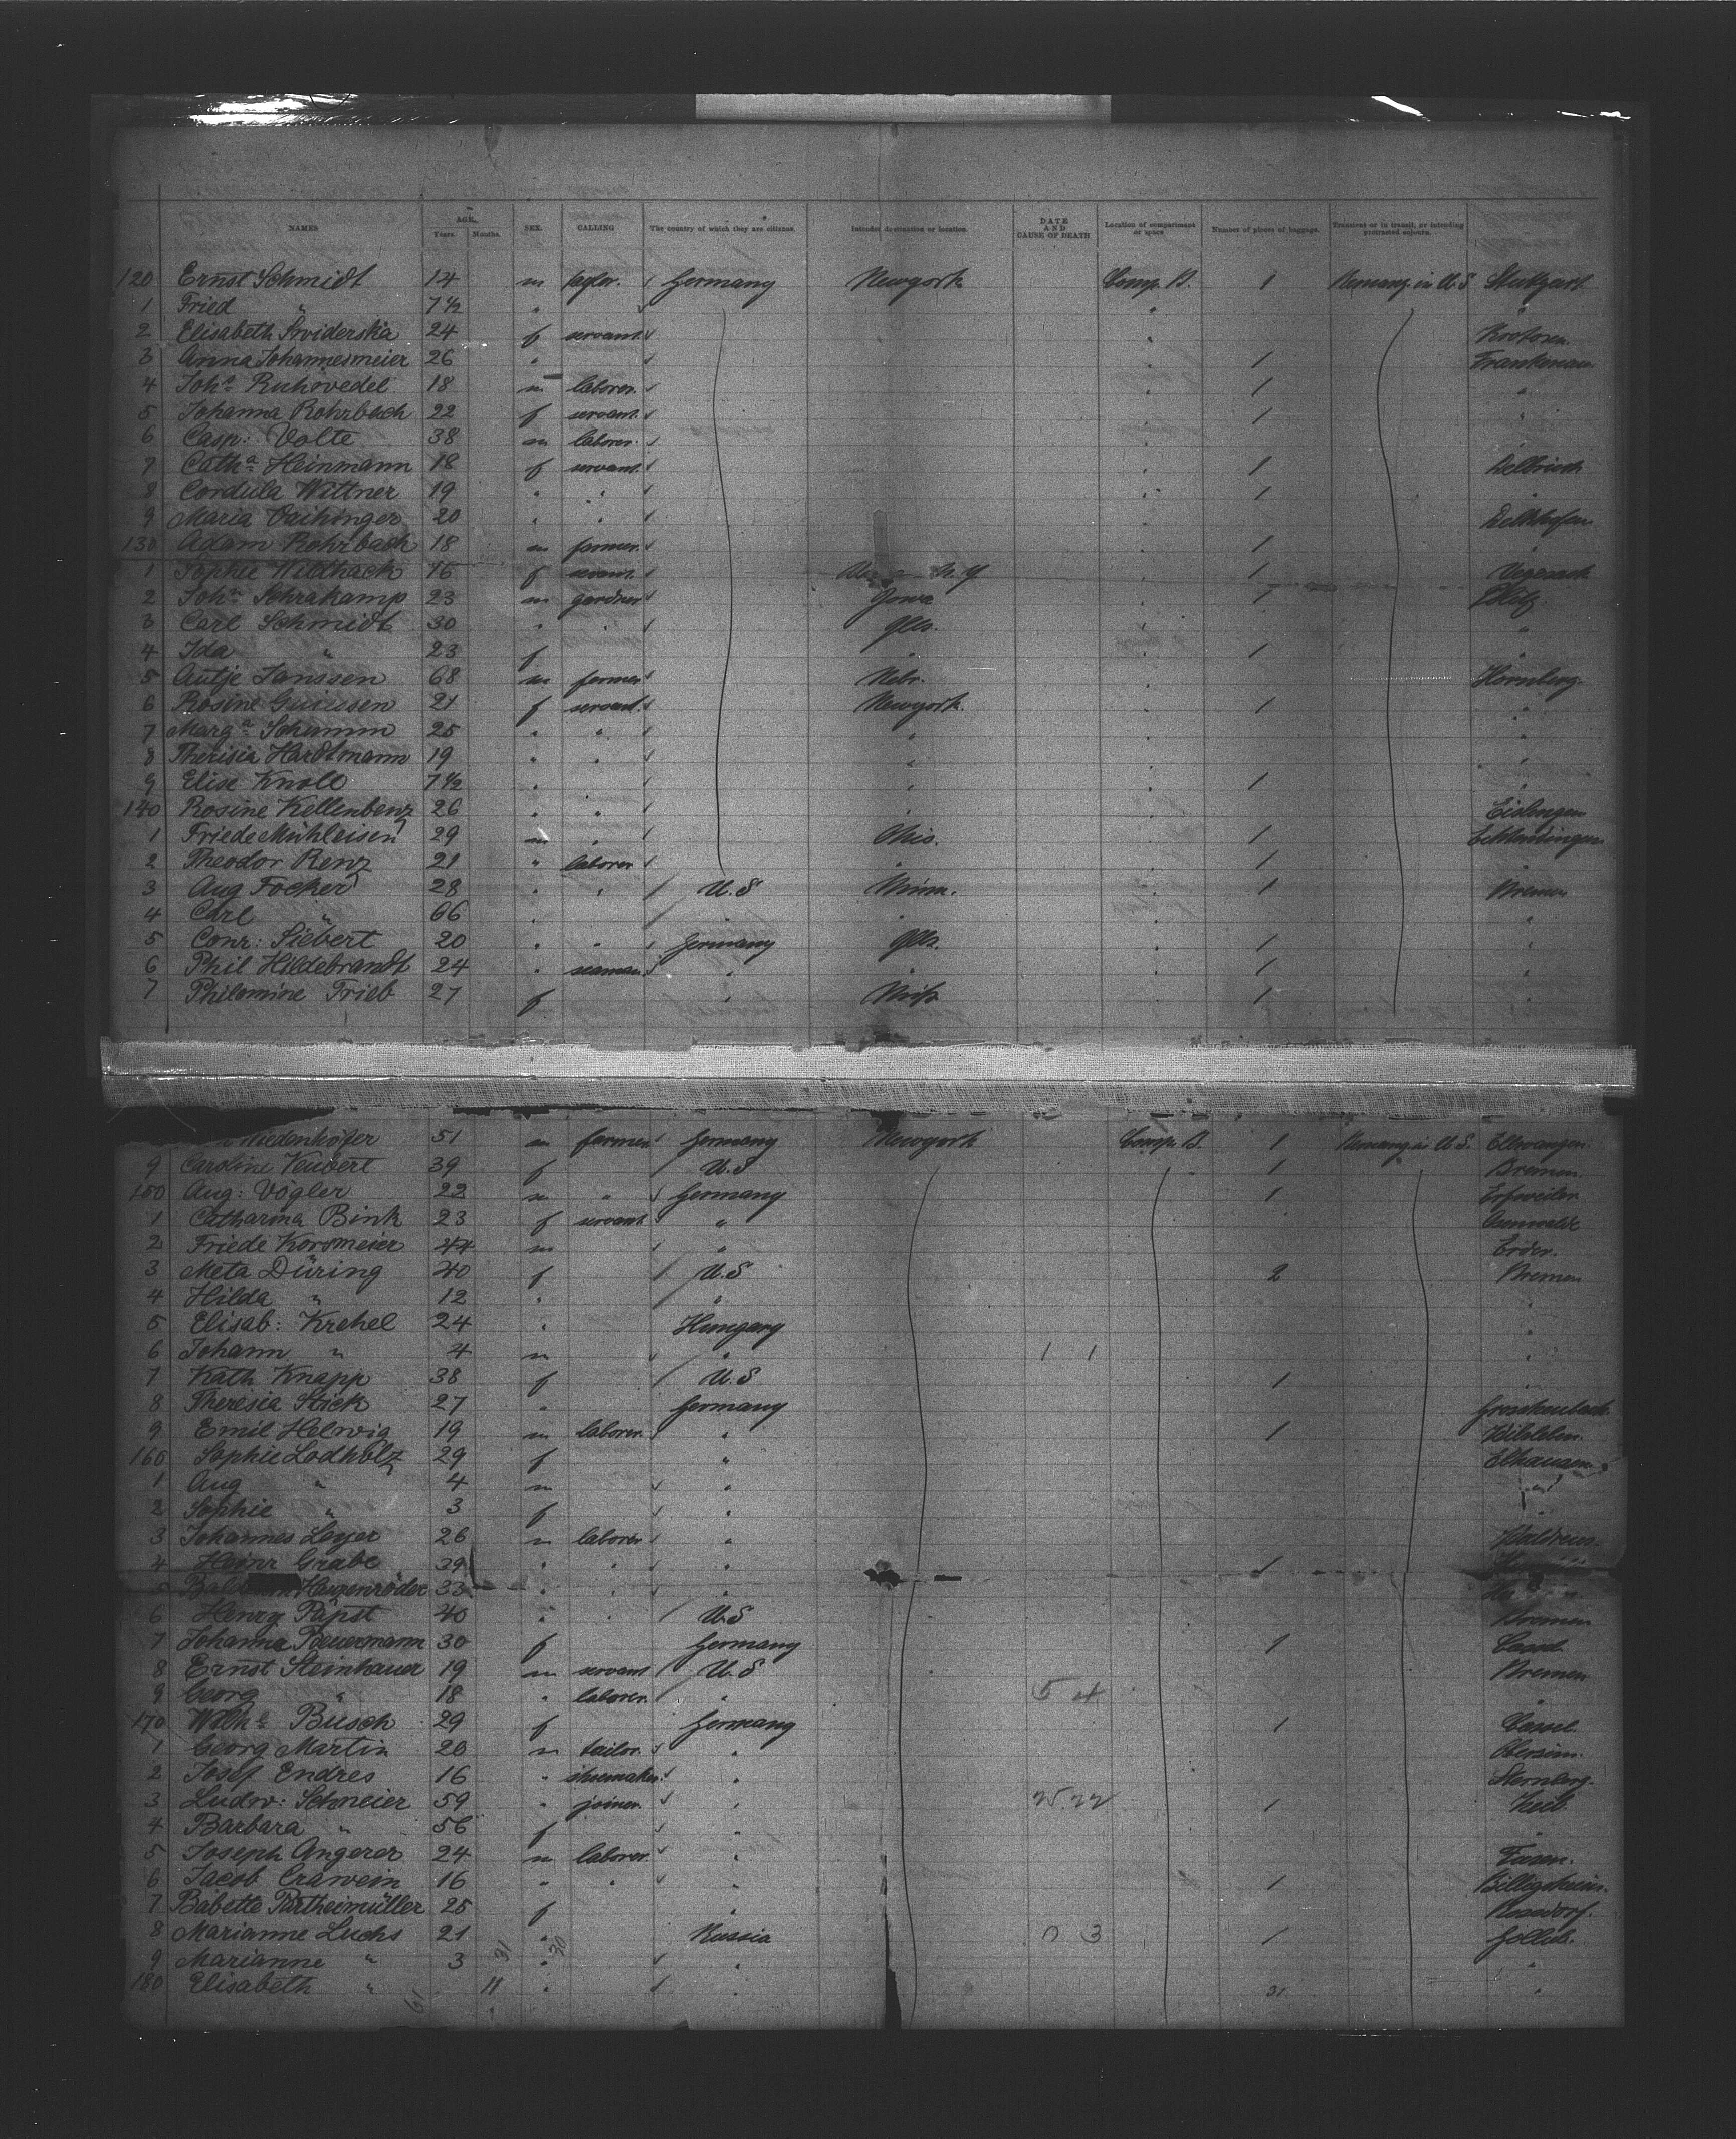 NAMES AGE. Years. Months. SEX. CALLING The country of which they are citizens. Intended destination or location. DATE AND CAUSE OF DEATH Location of compartment or space Number of pieces of baggage. Transient or in transit, or intending protracted sojourn.
120 Ernst Schmidt 14 m Germany Newyork Comp. B. 1 Stuttgart
1 Fried " 7½ "
2 Elisabeth Swiderska 24 f servant
3 Anna Johannesmeier 26 " 1
4 Joh. Ruhövedel 18 m laborer. 1 "
5 Johanna Rohrbach 22 f servant. 1 "
6 Casp: Volte 38 m laborer.
7 Cath.a Heinmann 18 f servant. 1 Delbrück
8 Cordula Wittner 19 " " 1 "
9 Maria Vaihinger 20 " "
130 Adam Rohrbach 18 m farmer. 1 "
1 Sophie Wildhack 16 f servant. N.Y. 1 Vegesack
2 Joh.n Schrakamp 23 m gardner Iowa 1
3 Carl Schmidt 30 " " Ills. "
4 Ida " 23 f " 1 "
5 Antje Janssen 68 m farmer Nebr. Hornberg.
6 Rosine 21 f servant. Newyork. 1 "
7 Marg.a Schumm 25 " " " "
8 Therisia Hardtmann 19 " " " "
9 Elise Knoll 7½ " " 1 "
140 Rosine Kellenbenz 26 " " " Eislingen
1 Friede Mühleisen 29 m " Ohio. 1
2 Theodor Renz 21 " laborer " 1 "
3 Aug Focker 28 " " U.S Minn. 1 Bremen
4 Carl " 66 " " " "
5 Conr: Siebert 20 " " Germany Ills. 1 "
6 Phil Hildebrandt 24 " seaman. " " 1 "
7 Philomine Trieb 27 f " 1 "
51 m farmer Germany Newyork Comp. B. 1 Ellwangen
9 Caroline Veubert 39 f U.S 1 Bremen.
150 Aug: Vögler 22 m " Germany 1 Erfweiler
1 Catharina Bink 23 f servant "
2 Friede Korsmeier 44 m " Erder.
3 Meta Düring 40 f U.S 2 Bremen
4 Hilda " 12 " " "
5 Elisab: Krehel 24 " Hungary "
6 Johann " 4 m " 1 1 "
7 Kath Knapp 38 f U.S 1 "
8 Theresia Stick 27 " Germany
9 Emil Helwig 19 m laborer. " 1
160 Sophie Lodholz 29 f " Elhausen
1 Aug " 4 m "
2 Sophie " 3 f " "
3 Johannes Leyer 26 m laborer "
4 Heinr Grabe 39 " " " 1
5 33 " " "
6 Henry Papst 40 " " U.S Bremen
7 Johanna Bauermann 30 f Germany 1 Cassel
8 Ernst Steinhauer 19 m servant U.S Bremen
9 Georg " 18 " laborer. " 5 4 "
170 Wilh.e Busch 29 f Germany 1 Cassel
1 Georg Martin 20 m tailor. "
2 Josef Endres 16 " shoemaker. " Sternberg.
3 Ludw: Schneier 59 " joiner. " 25 22 1
4 Barbara " 56 f " "
5 Joseph Angerer 24 m laborer. "
6 Jacob Crawein 16 " " " 1 Billigsheim.
7 Babette Partheimüller 25 f " Rossdorf.
8 Marianne Luchs 21 " Russia 0 3 1 Gollub.
9 Marianne " 3 31 " 30 " "
180 Elisabeth " 11 " " 31 "
61